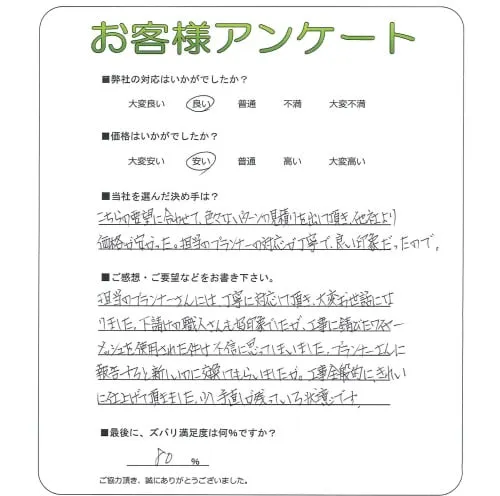 お客様アンケート
■弊社の対応はいかがでしたか？
大変良い 良い 普通 不満 大変不満
■価格はいかがでしたか？
大変安い 安い 普通 高い 大変高い
■当社を選んだ決め手は？
こちらの要望に合わせて、色々なパターンの見積りを出して頂き、他社より
価格が安かった。担当のプランナーの対応が丁寧で、良い印象だったので。
■ご感想・ご要望などをお書き下さい。
担当のプランナーさんには、丁寧に対応して頂き、大変お世話にな
りました。下請けの職人さんも好印象でしたが、工事に錆びたワイヤー
メッシュを使用された件は不信に思ってしまいました。プランナーさんに
報告すると新しい物に交換してもらいましたが。工事全般的に、きれい
に仕上げて頂きました。少し手直しが残っている状態です。
■最後に、ズバリ満足度は何％ですか？
80 %
ご協力頂き、誠にありがとうございました。